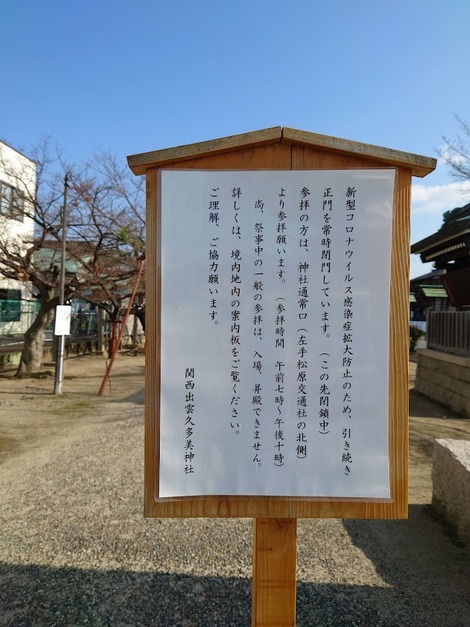 新型コロナウイルス感染症拡大防止のため、引き続き
正門を常時閉門しています。（この先閉鎖中）
参拝の方は、神社通常口（左手松原交通社の北側）
より参拝願います。（参拝時間　午前七時～午後十時）
尚、祭事中の一般の参拝は、入場、昇殿できません。
詳しくは、境内地内の案内板をご覧ください。
ご理解、ご協力願います。
関西出雲久多美神社